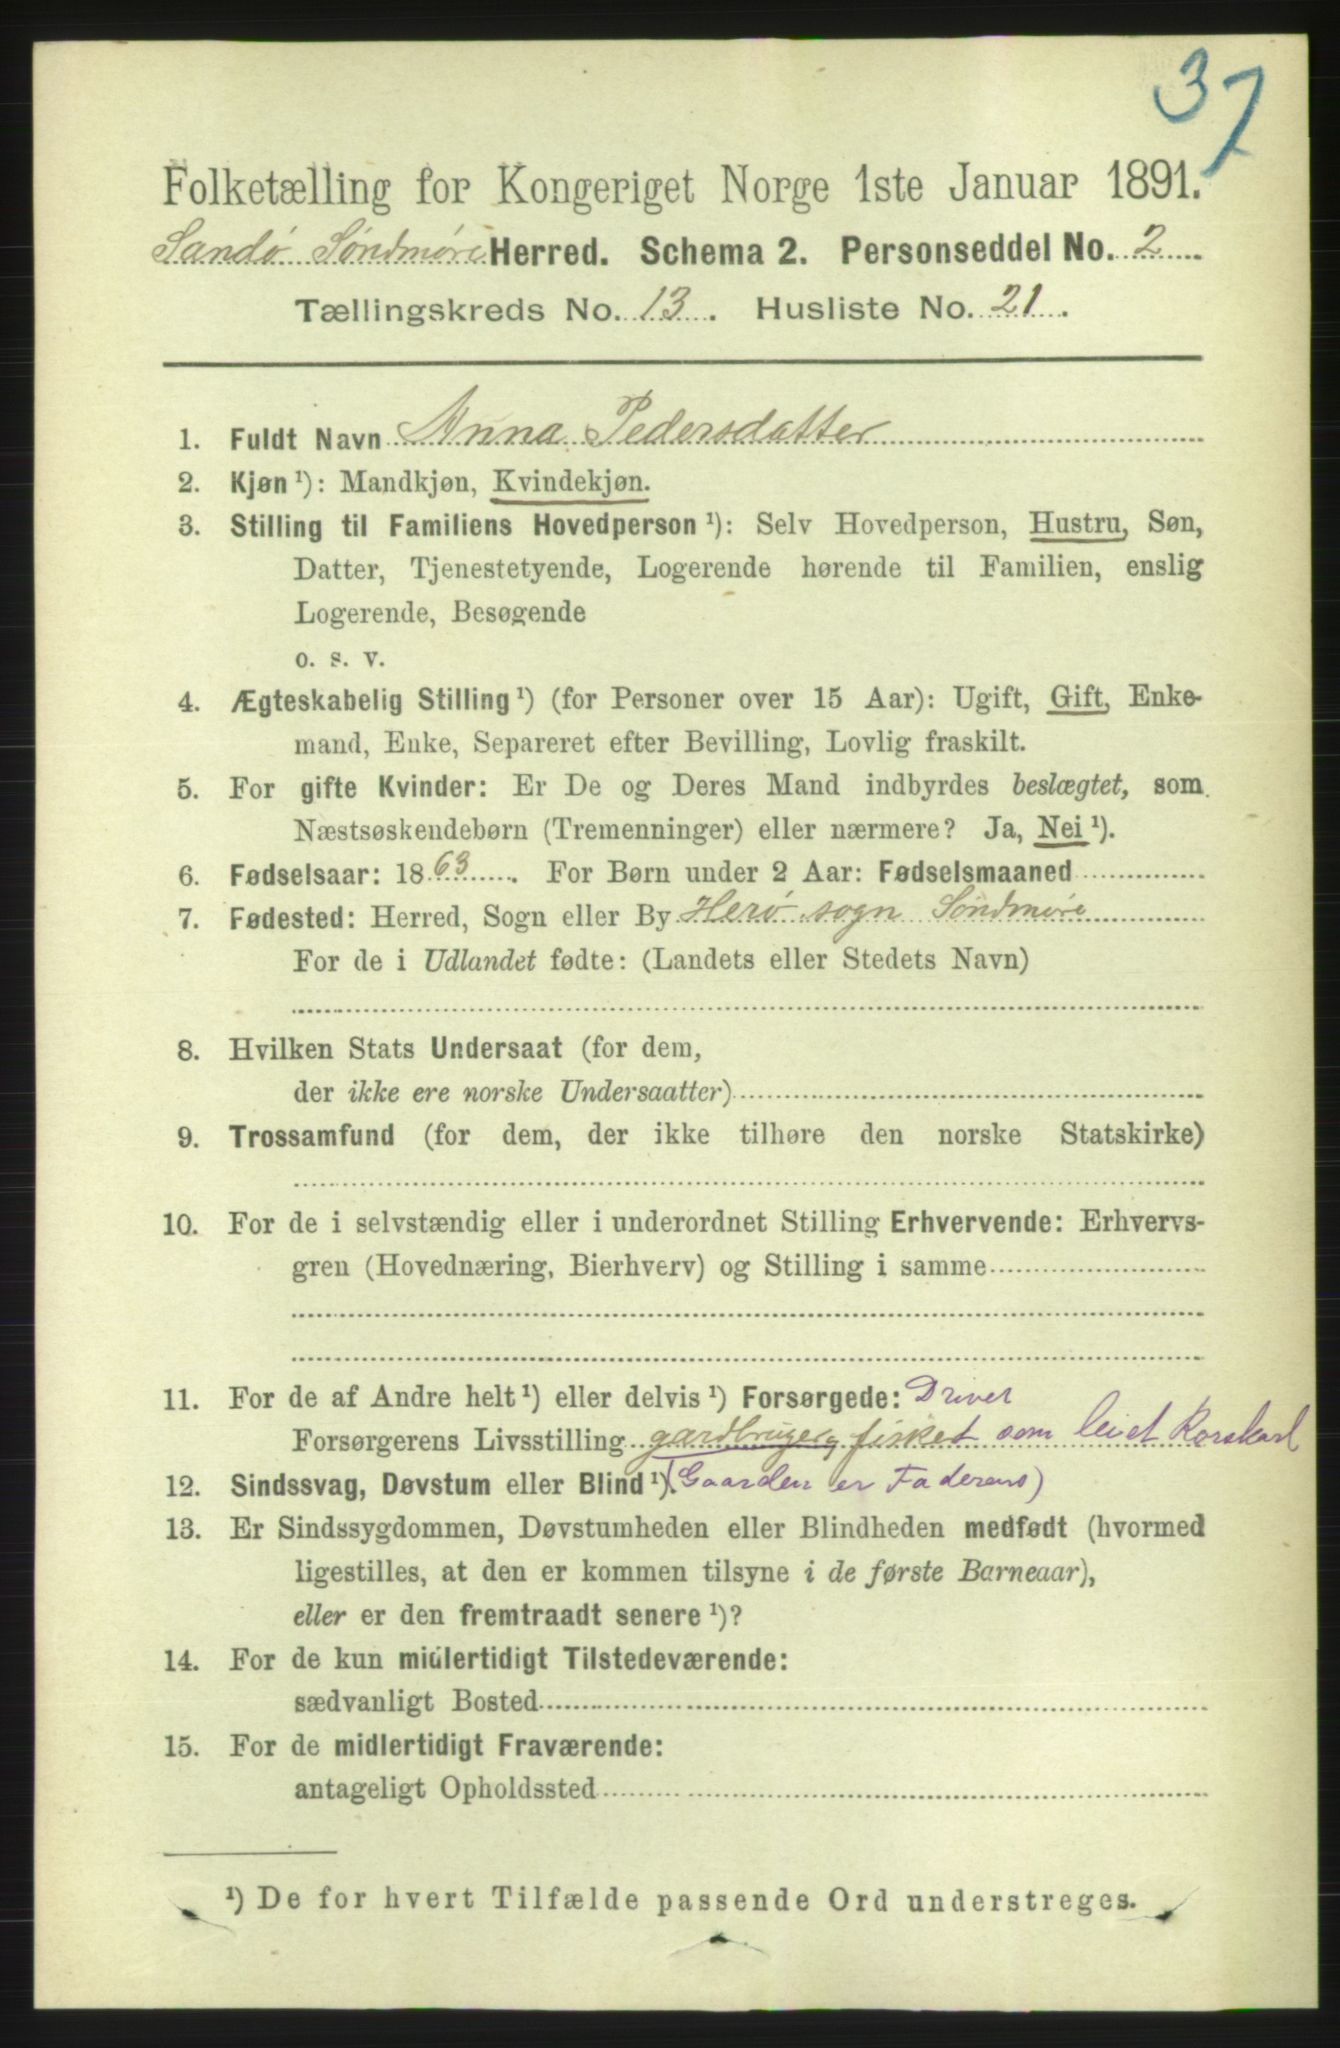 37
Folketælling for Kongeriget Norge 1ste Januar 1891.
Sandø Søndmøre Herred. Schema 2. Personseddel No. 2
Tællingskreds No. 13. Husliste No. 21.
1. Fuldt Navn Anna Pedersdatter
2. Kjøn ¹): Mandkjøn, Kvindekjøn.
3. Stilling til Familiens Hovedperson ¹): Selv Hovedperson, Hustru, Søn,
Datter, Tjenestetyende, Logerende hørende til Familien, enslig
Logerende, Besøgende
o. s. v.
4. Ægteskabelig Stilling ¹) (for Personer over 15 Aar): Ugift, Gift, Enke-
mand, Enke, Separeret efter Bevilling, Lovlig fraskilt.
5. For gifte Kvinder: Er De og Deres Mand indbyrdes beslægtet, som
Næstsøskendebørn (Tremenninger) eller nærmere? Ja, Nei ¹).
6. Fødselsaar: 1863. For Børn under 2 Aar: Fødselsmaaned
7. Fødested: Herred, Sogn eller By Herø sogn Søndmøre
For de i Udlandet fødte: (Landets eller Stedets Navn)
8. Hvilken Stats Undersaat (for dem,
der ikke ere norske Undersaatter)
9. Trossamfund (for dem, der ikke tilhøre den norske Statskirke)
10. For de i selvstændig eller i underordnet Stilling Erhvervende: Erhvervs-
gren (Hovednæring, Bierhverv) og Stilling i samme
11. For de af Andre helt ¹) eller delvis ¹) Forsørgede: Driver
Forsørgerens Livsstilling gardbruger, fisket som leiet Rorskarl
12. Sindssvag, Døvstum eller Blind ¹). (Gaarden er Faderens)
13. Er Sindssygdommen, Døvstumheden eller Blindheden medfødt (hvormed
ligestilles, at den er kommen tilsyne i de første Barneaar),
eller er den fremtraadt senere ¹)?
14. For de kun midlertidigt Tilstedeværende:
sædvanligt Bosted
15. For de midlertidigt Fraværende:
antageligt Opholdssted
¹) De for hvert Tilfælde passende Ord understreges.